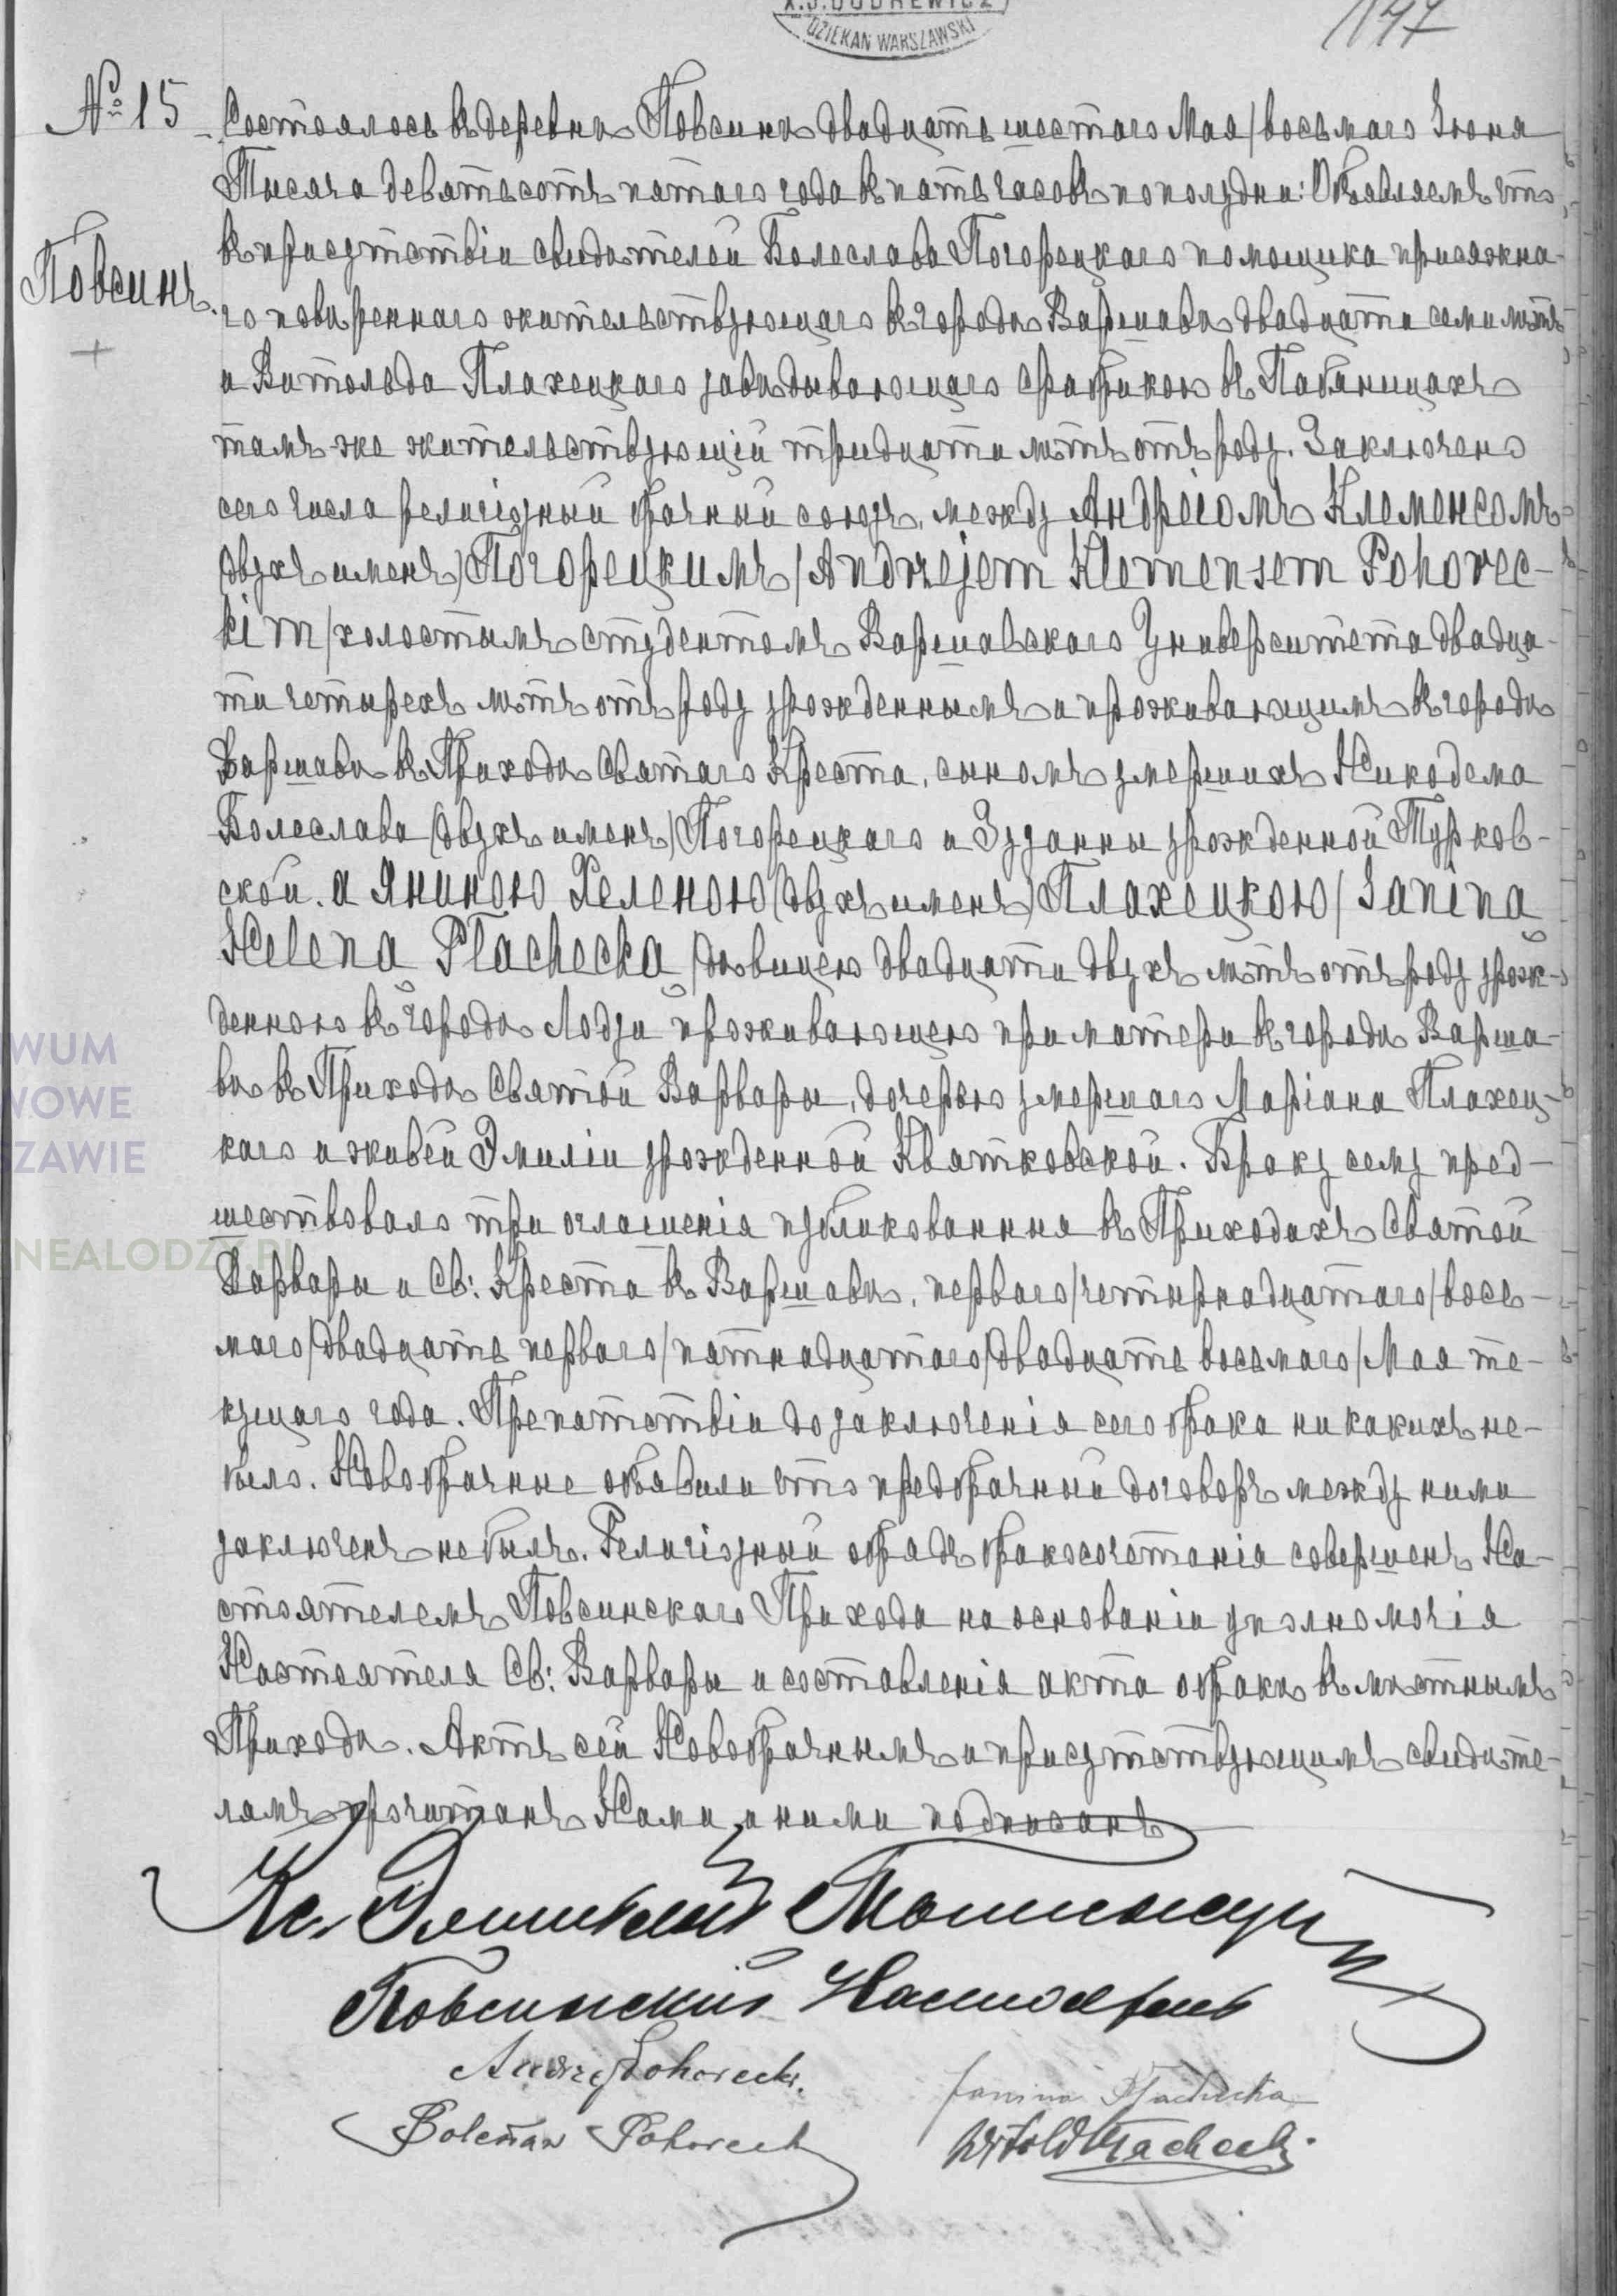 X.J.DUDREWICZ
DZIEKAN WARSZAWSKI
147
№ 15
Состоялось въ деревнѣ Повсинѣ двадцать шестаго Мая/восьмаго Іюня
Тысяча девятьсотъ пятаго года въ пять часовъ пополудни: Объявляемъ что
Повсинъ.
въ присутствіи свидѣтелей Болеслава Погорецкаго помощика присяжна-
го повѣреннаго жительствующаго въ городѣ Варшавѣ двадцати семи лѣтъ
и Витольда Плахецкаго завѣдывающаго фабрикою въ Пабяницахъ
тамъ-же жительствующій тридцати лѣтъ отъ роду. Заключено
сего числа религіозный брачный союзъ, между Андреіомъ Клеменсомъ
(двухъ именъ) Погорецкимъ /Andrzejem Klemensem Pohorec-
kim/ холостымъ студентомъ Варшавскаго Университета двадца-
ти четырехъ лѣтъ отъ роду урожденнымъ и проживающимъ въ городѣ
Варшавѣ въ Приходѣ Святаго Креста, сыномъ умершихъ Никодема
Болеслава (двухъ именъ) Погорецкаго и Зузанны урожденной Турков-
ской. а Яниною Хеленою (двухъ именъ) Плахецкою /Janina
Helena Płachecka/ дѣвицею двадцати двухъ лѣтъ отъ роду урож-
денною въ городѣ Лодзи проживающею при матери въ городѣ Варша-
вѣ въ Приходѣ Святой Варвары, дочерью умершаго Маріана Плахец-
каго и живей Эмиліи урожденной Квятковской. Браку сему пред-
шествовало три оглашенія публикованныя въ Приходахъ Святой
Варвары и Св: Креста въ Варшавѣ, перваго/четырнадцатаго/вось-
маго/двадцать перваго/пятнадцатаго/двадцать восьмаго/Мая те-
кущаго года. Препятствіи до заключенія сего брака никакихъ не-
было. Новобрачные объявили что предбрачный договоръ между ними
заключенъ небылъ. Религіозный обрядъ бракосочетанія совершенъ На-
стоятелемъ Повсинскаго Прихода на основаніи уполномочія
Настоятеля Св: Варвары и составленія акта о бракѣ въ мѣстнымъ
Приходѣ. Актъ сей Новобрачнымъ и присутствующимъ свидѣте-
лямъ прочитанъ Нами и ними подписанъ
Кс.
Повсинскій Настоятель
Andrzej Pohorecki.
Janina Płachecka
Bolesław Pohorecki
Witold Płachecki.
WUM
WOWE
SZAWIE
NEALODZY.PL